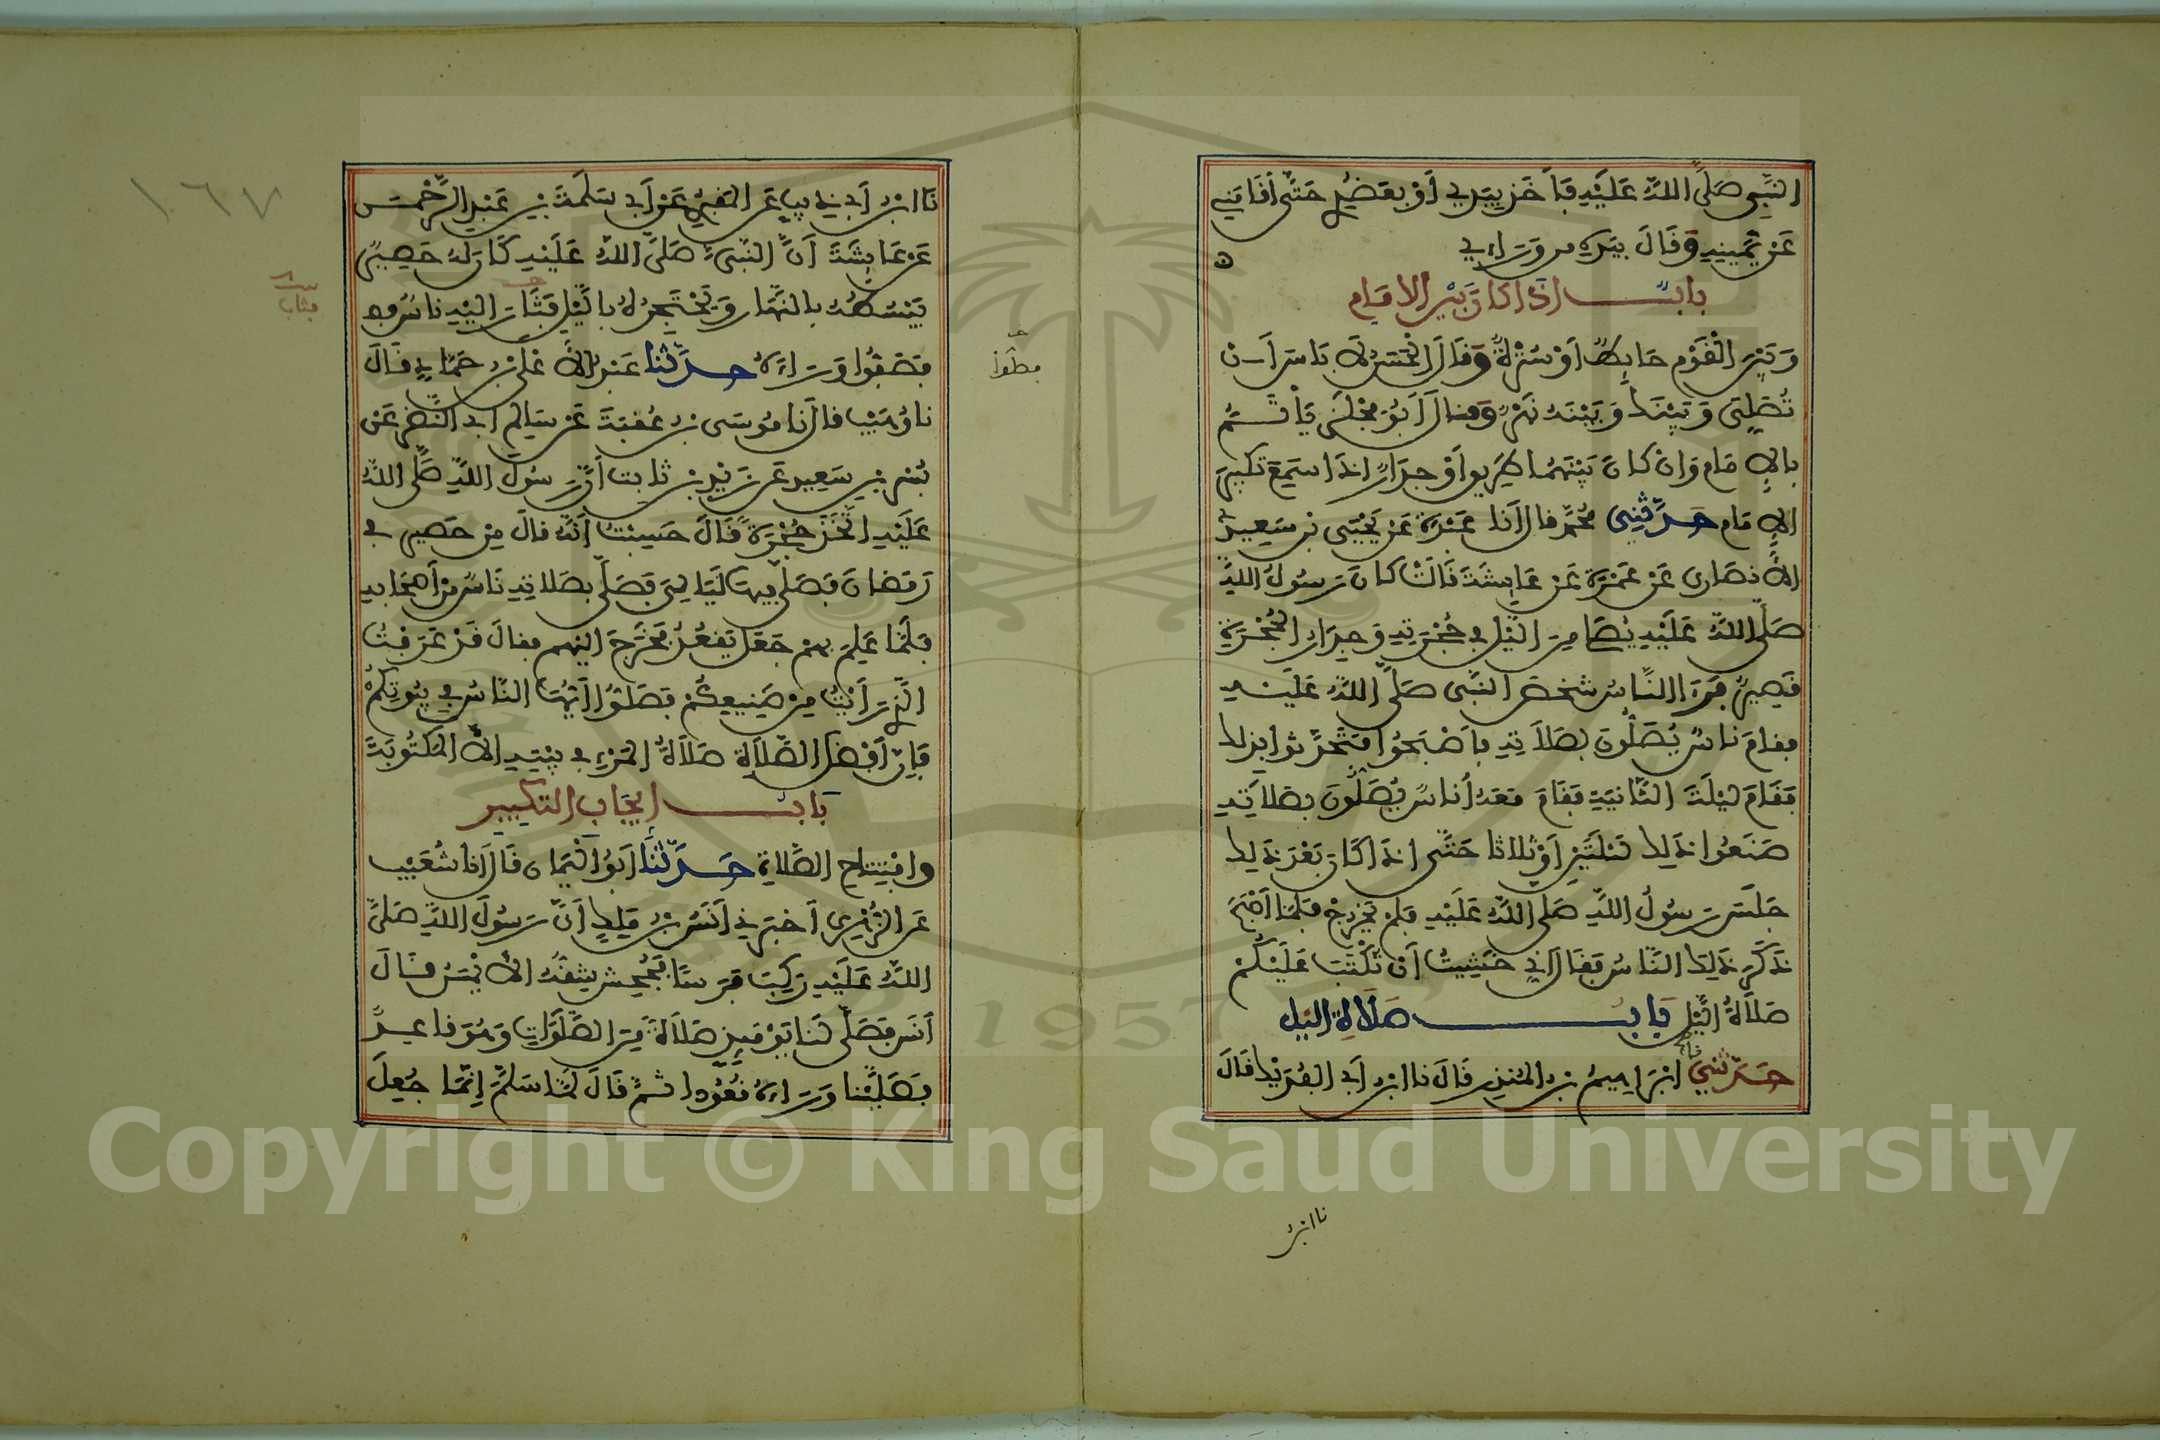 النَّبِيِّ صَلَّى اللَّهُ عَلَيْهِ فَأَخَذَ بِيَدِي أَوْ بِعَضُدِي حَتَّى أَقَامَنِي
عَنْ يَمِينِهِ وَقَالَ بِيَدِهِ مِن وَرَاءِي
بَابُ إِذَا كَانَ بَيْنَ الإِمَامِ
وَبَيْنَ الْقَوْمِ حَائِطٌ أَوْ سُتْرَةٌ وَقَالَ الْحَسَنُ لَا بَاسَ أَنْ
تُصَلِّيَ وَبَيْنَكَ وَبَيْنَهُ نَهْرٌ وَقَالَ أَبُو مِجْلَزٍ يَأْتَمُّ
بِالإِمَامِ وَإِنْ كَانَ بَيْنَهُمَا طَرِيقٌ أَوْ جِدَارٌ إِذَا سَمِعَ تَكْبِيرَ
الإِمَامِ حَدَّثَنِي مُحَمَّدٌ قَالَ أَنَا عَبْدَةُ عَنْ يَحْيَى بْنِ سَعِيدٍ
الأَنْصَارِي عَنْ عَمْرَةَ عَنْ عَائِشَةَ قَالَتْ كَانَ رَسُولُ اللَّهِ
صَلَّى اللَّهُ عَلَيْهِ يُصَلِّي مِنَ الَّيْلِ فِي حُجْرَتِهِ وَجِدَارُ الْحُجْرَةِ
قَصِيرٌ فَرَأَى النَّاسُ شَخْصَ النَّبِي صَلَّى اللَّهُ عَلَيْهِ
فَقَامَ نَاسٌ يُصَلُّونَ بِصَلَاتِهِ فَأَصْبَحُوا فَتَحَدَّثُوا بِذَلِكَ
فَقَامَ لَيْلَةَ الثَّانِيَةِ فَقَامَ مَعَهُ أُنَاسٌ يُصَلُّونَ بِصَلَاتِهِ
صَنَعُوا ذَلِكَ لَيْلَتَيْنِ أَوْ ثَلَاثًا حَتَّى إِذَا كَانَ بَعْدَ ذَلِكَ
جَلَسَ رَسُولُ اللَّهِ صَلَّى اللَّهُ عَلَيْهِ فَلَمْ يَخْرُجْ فَلَمَّا أَصْبَحَ
ذَكَرَ ذَلِكَ النَّاسُ فَقَالَ إِنِّي خَشِيتُ أَنْ تُكْتَبَ عَلَيْكُمْ
صَلَاةُ الَّيْلِ بَابُ صَلَاةِ الَّيْلِ
حَدَّثَنِي إِبْرَاهِيمُ بْنُ الْمُنْذِرِ قَالَ نَا ابْنُ أَبِي الْفُدَيْكِ قَالَ
نا ابن
نَا ابْنُ أَبِي ذِيبٍ عَنِ الْمَقْبُرِيِّ عَنْ أَبِي سَلَمَةَ بْنِ عَبْدِ الرَّحْمَنِ
عَنْ عَائِشَةَ أَنَّ النَّبِيَّ صَلَّى اللَّهُ عَلَيْهِ كَانَ لَهُ حَصِيرٌ
يَبْسُطُهُ بِالنَّهَارِ وَيَحْتَجِرُهُ بِالَّيْلِ فَثَابَ إِلَيْهِ نَاسٌ
فَصَفُّوا وَرَاءَهُ حَدَّثَنَا عَبْدُ الأَعْلَى بْنُ حَمَّادٍ قَالَ
نا وُهَيْبٌ قَالَ نَا مُوسَى بْنُ عُقْبَةَ عَنْ سَالِمٍ أَبِي النَّضْرِ عَنْ
بُسْرِ بْنِ سَعِيدٍ عَنْ زَيْدِ بْنِ ثَابِتٍ أَنَّ رَسُولَ اللَّهِ صَلَّى اللَّهُ
عَلَيْهِ اتَّخَذَ حُجْرَةً قَالَ حَسِبْتُ أَنَّهُ قَالَ مِنْ حَصِيرٍ فِي
رَمَضَانَ فَصَلَّى فِيهَا لَيَالِيَ فَصَلَّى بِصَلَاتِهِ نَاسٌ مِنْ أَصْحَابِهِ
فَلَمَّا عَلِمَ بِهِمْ جَعَلَ يَقْعُدُ فَخَرَجَ إِلَيْهِمْ فَقَالَ قَدْ عَرَفْتُ
الَّذِي رَأَيْتُ مِنْ صَنِيعِكُمْ فَصَلُّوا أَيُّهَا النَّاسُ فِي بُيُوتِكُمْ
فَإِنَّ أَفْضَلَ الصَّلَاةِ صَلَاةُ الْمَرْءِ فِي بَيْتِهِ إِلَّا الْمَكْتُوبَةَ
بَابُ إِيجَابِ التَّكْبِيرِ
وَافْتِتَاحِ الصَّلَاةِ حَدَّثَنَا أَبُو الْيَمَانِ قَالَ أَنَا شُعَيْبٌ
عَنِ الزُّهْرِي أَخْبَرَنِي أَنَسُ بْنُ مَلِكٍ أَنَّ رَسُولَ اللَّهِ صَلَّى
اللَّهُ عَلَيْهِ رَكِبَ فَرَسًا فَجُحِشَ شِقُّهُ الأَيْمَنُ قَالَ
أَنَسٌ فَصَلَّى لَنَا يَوْمَئِذٍ صَلَاةً مِنَ الصَّلَوَاتِ وَهُوَ قَاعِدٌ
فَصَلَّيْنَا وَرَاءَهُ قُعُودًا ثُمَّ قَالَ لَمَّا سَلَّمَ إِنَّمَا جُعِلَ
١٦٧
Copyright © King Saud University
1957